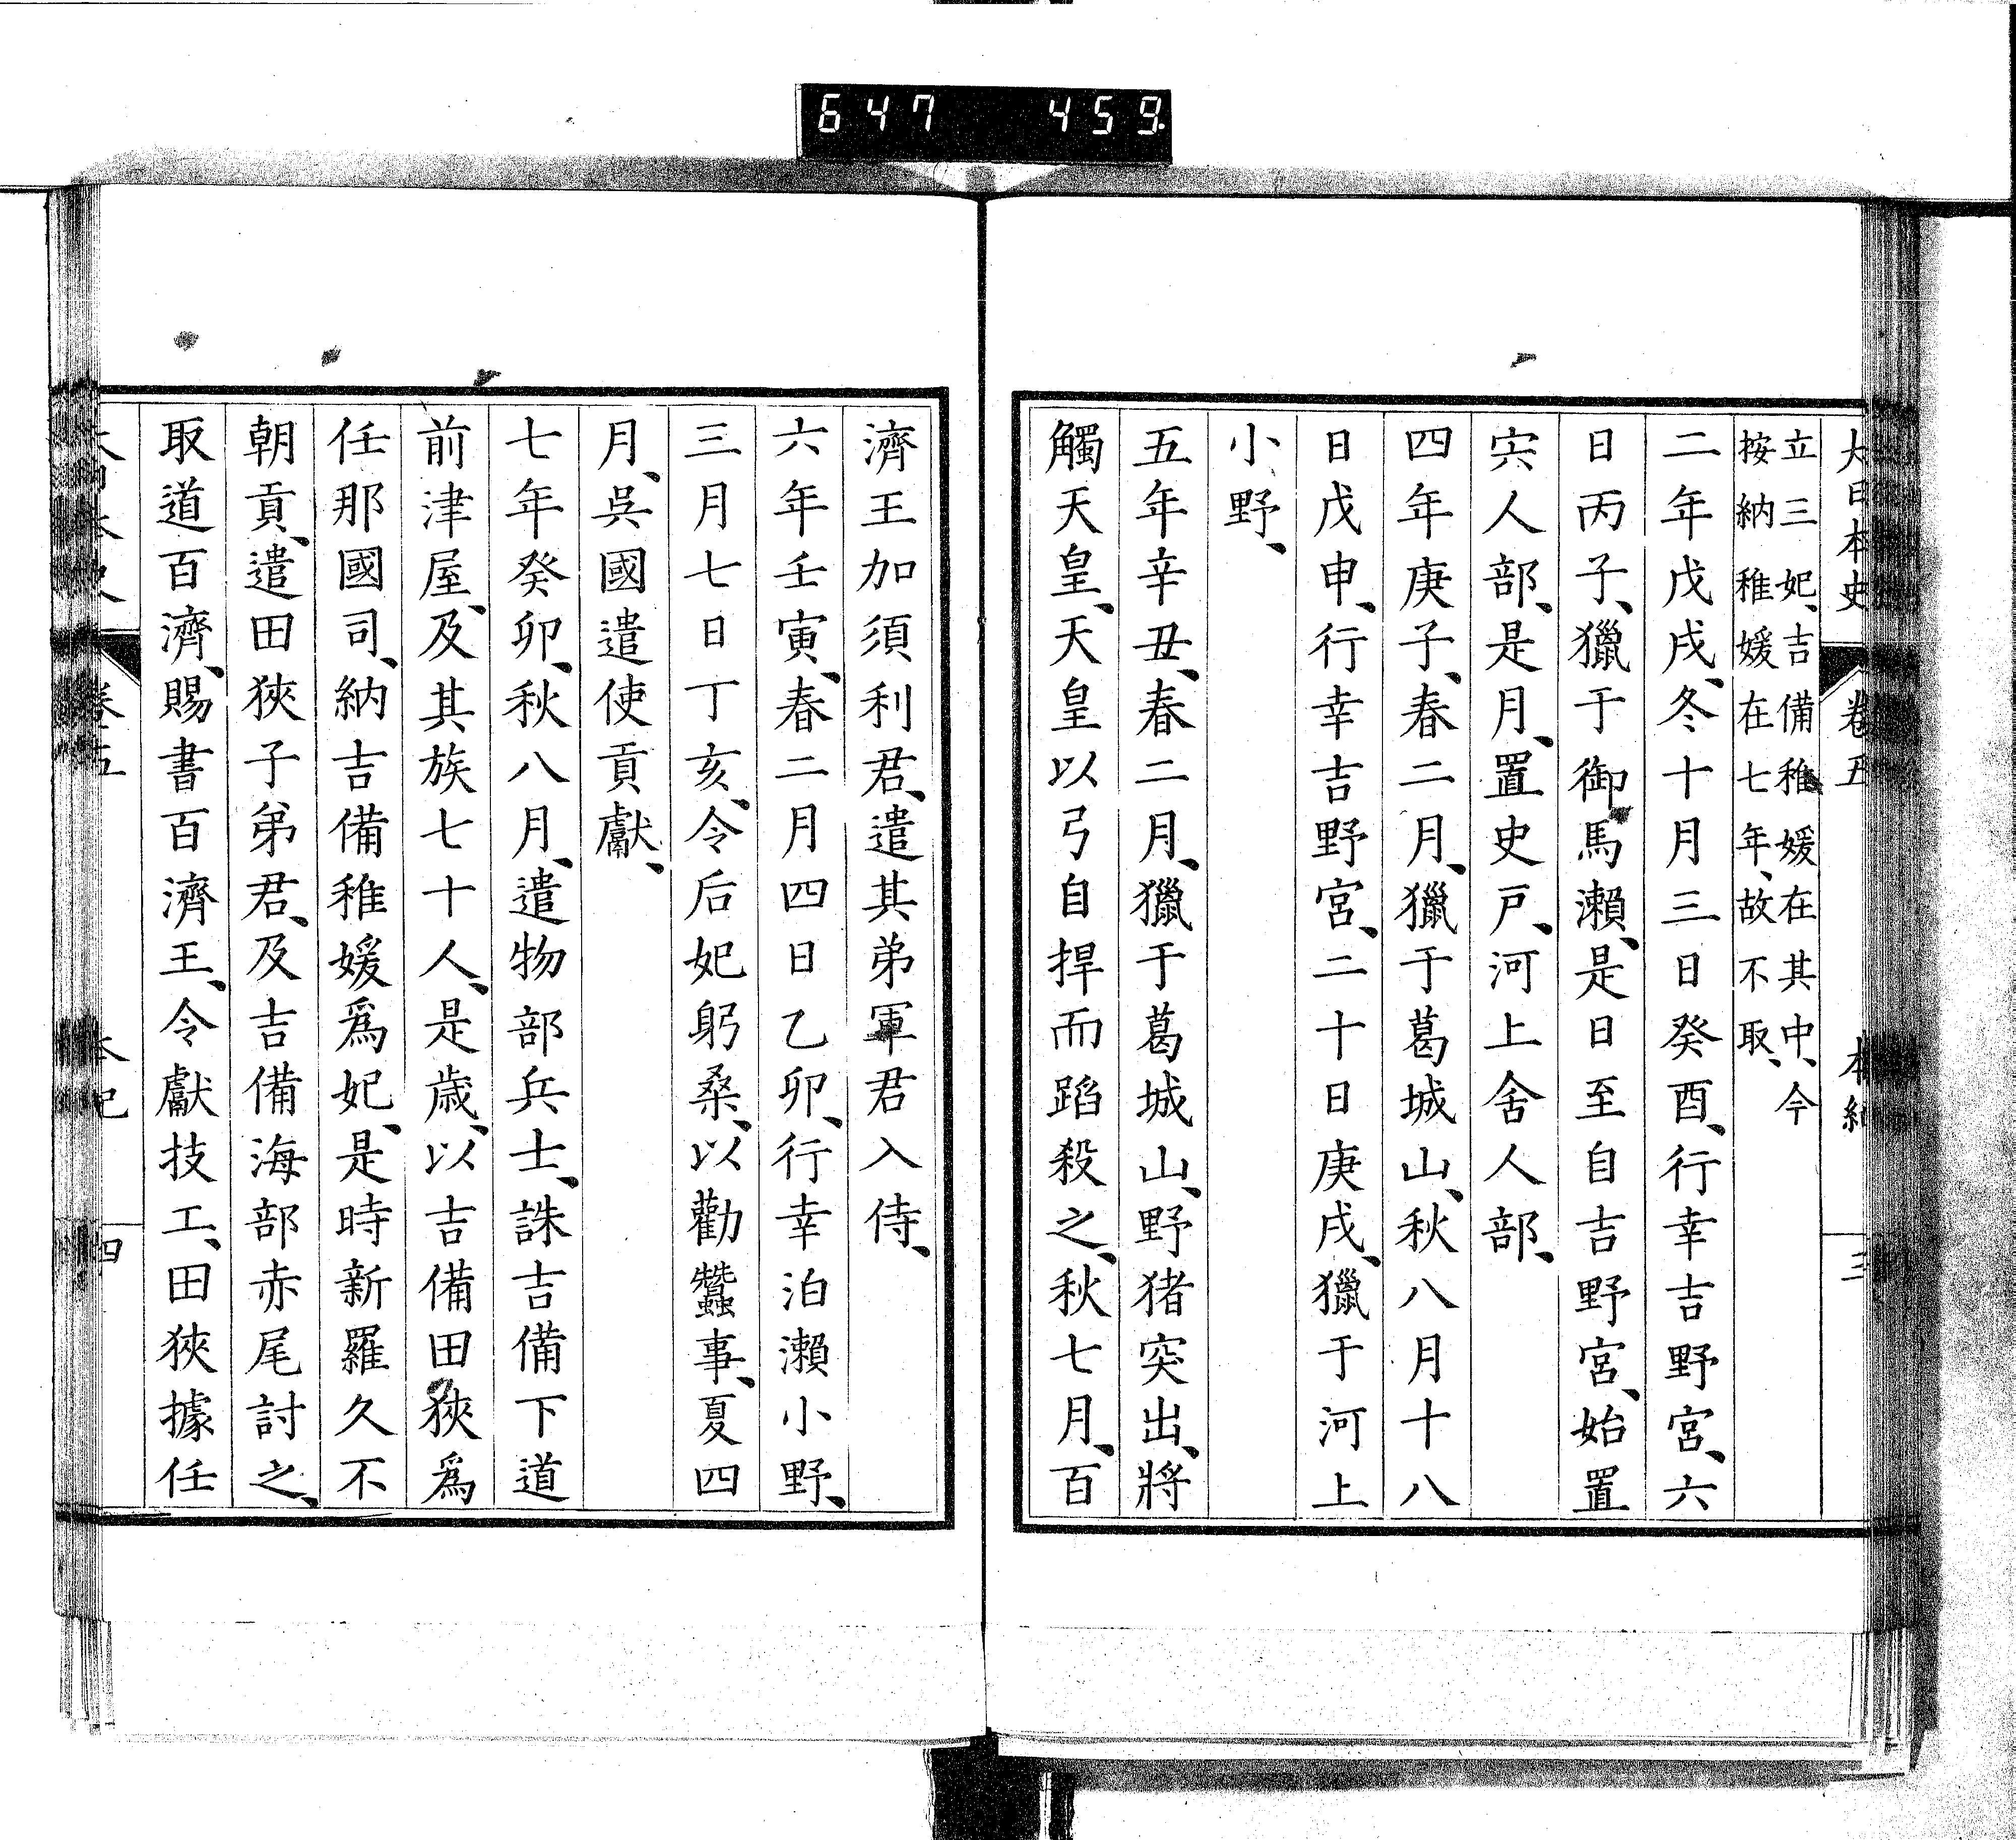 647 459
大日本史 卷五 本紀 三
立三妃、吉備稚媛在其中、今
按納稚媛在七年、故不取、
二年戊戌、冬十月三日癸酉、行幸吉野宮、六
日丙子、獵于御馬瀨、是日至自吉野宮、始置
宍人部、是月、置史戸、河上舍人部、
四年庚子、春二月、獵于葛城山、秋八月十八
日戊申、行幸吉野宮、二十日庚戌、獵于河上
小野、
五年辛丑、春二月、獵于葛城山、野猪突出、將
觸天皇、天皇以弓自捍而蹈殺之、秋七月、百
濟王加須利君、遣其弟軍君入侍、
六年壬寅、春二月四日乙卯、行幸泊瀨小野、
三月七日丁亥、令后妃躬桑、以勸蠶事、夏四
月、呉國遣使貢獻、
七年癸卯、秋八月、遣物部兵士、誅吉備下道
前津屋、及其族七十人、是歳、以吉備田狹爲
任那國司、納吉備稚媛爲妃、是時新羅久不
朝貢、遣田狹子弟君、及吉備海部赤尾討之、
取道百濟、賜書百濟王、令獻技工、田狹據任
卷五 本紀 四